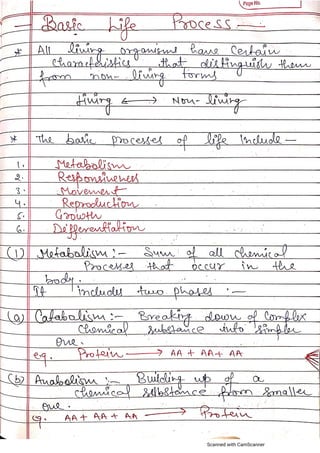 Page No.
Basic Life Process :-
* All living organisms have certain
characteristics that distinguish them
from non-living forms
Living ⟷ Non-living
* The basic processes of life include —
1. Metabolism
2. Responsiveness
3. Movement
4. Reproduction
5. Growth
6. Defferentiation
(1) Metabolism :- Sum of all chemical
Processes that occur in the
body.
It includes two phases :-
(a) Catabalism :- Breaking down of Complex
Chemical substance into simpler
One.
eg. Protein ⟶ AA + AA + AA
(b) Anabolism :- Building up of a
chemical substance from smaller
one.
eg. AA + AA + AA ⟶ Protein
Scanned with CamScanner